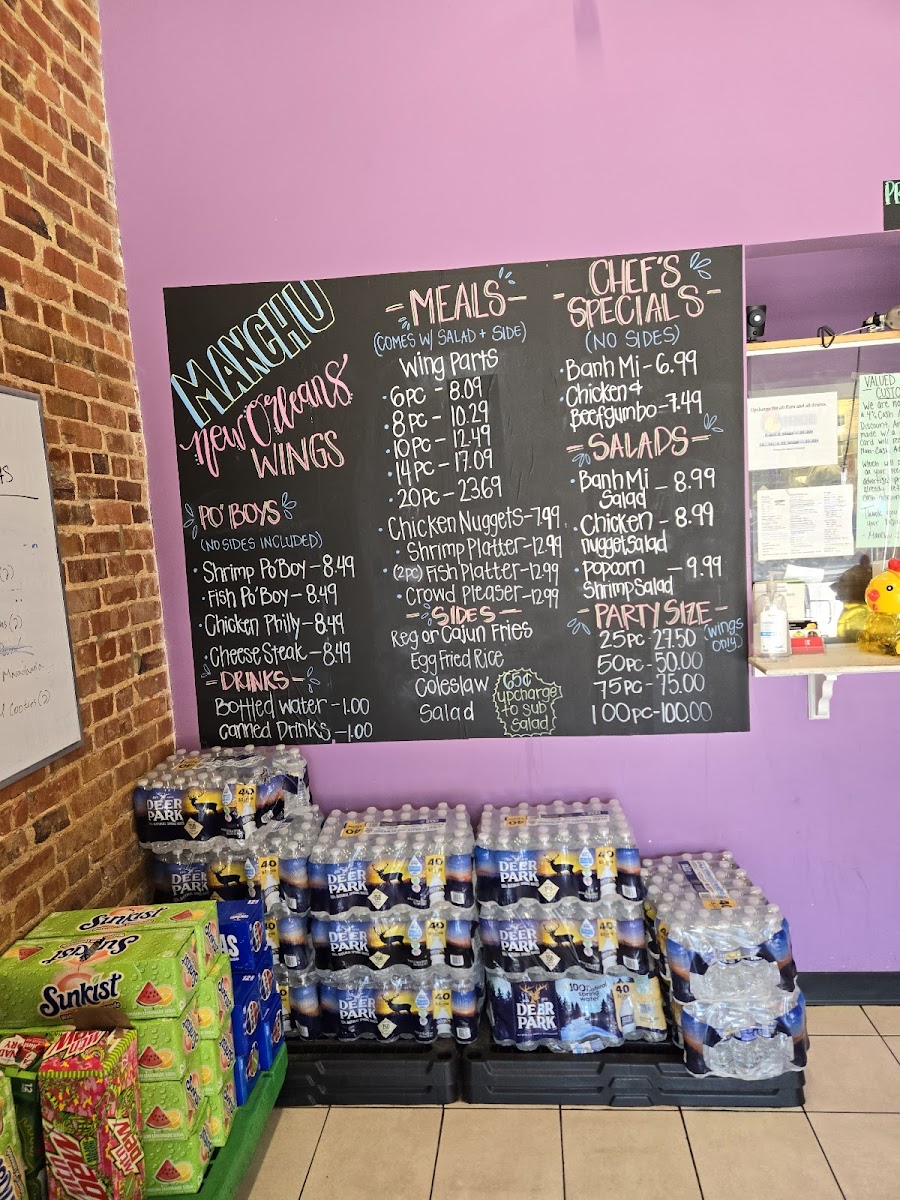 MANCHU
New Orleans
WINGS
PO' BOYS
(NO SIDES INCLUDED)
· Shrimp Po'Boy - 8.49
· Fish Po'Boy - 8.49
· Chicken Philly - 8.49
· Cheese Steak - 8.49
- DRINKS -
Bottled Water - 1.00
Canned Drinks - 1.00
- MEALS -
(COMES W/ SALAD + SIDE)
Wing Parts
· 6pc - 8.09
· 8pc - 10.29
· 10pc - 12.49
· 14pc - 17.09
· 20pc - 23.69
· Chicken Nuggets - 7.99
· Shrimp Platter - 12.99
· (2pc) Fish Platter - 12.99
· Crowd Pleaser - 12.99
- SIDES -
Reg or Cajun Fries
Egg Fried Rice
Coleslaw
Salad
65¢
upcharge
to sub
Salad
CHEF'S
- SPECIALS -
(NO SIDES)
· Banh Mi - 6.99
· Chicken &
Beef gumbo - 7.49
- SALADS -
· Banh Mi
Salad - 8.99
· Chicken - 8.99
nugget salad
· popcorn
Shrimp Salad - 9.99
- PARTY SIZE -
(wings
only)
25pc - 27.50
50pc - 50.00
75pc - 75.00
100pc - 100.00
VALUED
We are
Discount.
DEER
PARK
40
DEER
PARK
40
DEER
PARK
40
DEER
PARK
40
DEER
PARK
40
DEER
PARK
40
DEER
PARK
40
100% Natural
spring
water
DEER
PARK
40
Sunkist
Sunkist
Sunkist